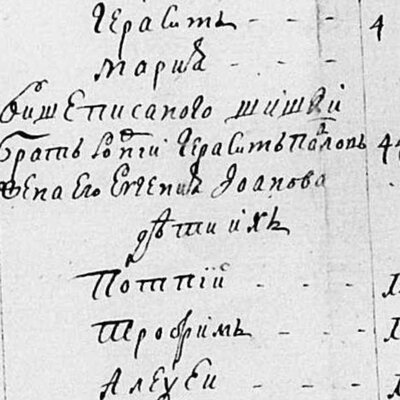 Герасимъ - - - 4
Мария - - -
Вышеписаного Шишки
братъ Герасимъ Павловъ 4
Жена Его Евгения Иоанова
дѣти ихъ
Потпїй - - -
Трофимъ - - -
Алеѯѣи - - -